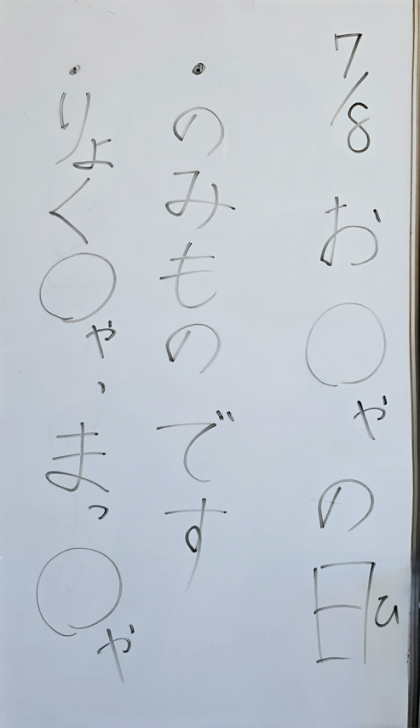 7/8 お〇ゃの日
ひ
・のみものです
・りょく〇ゃ、まっ〇ゃ